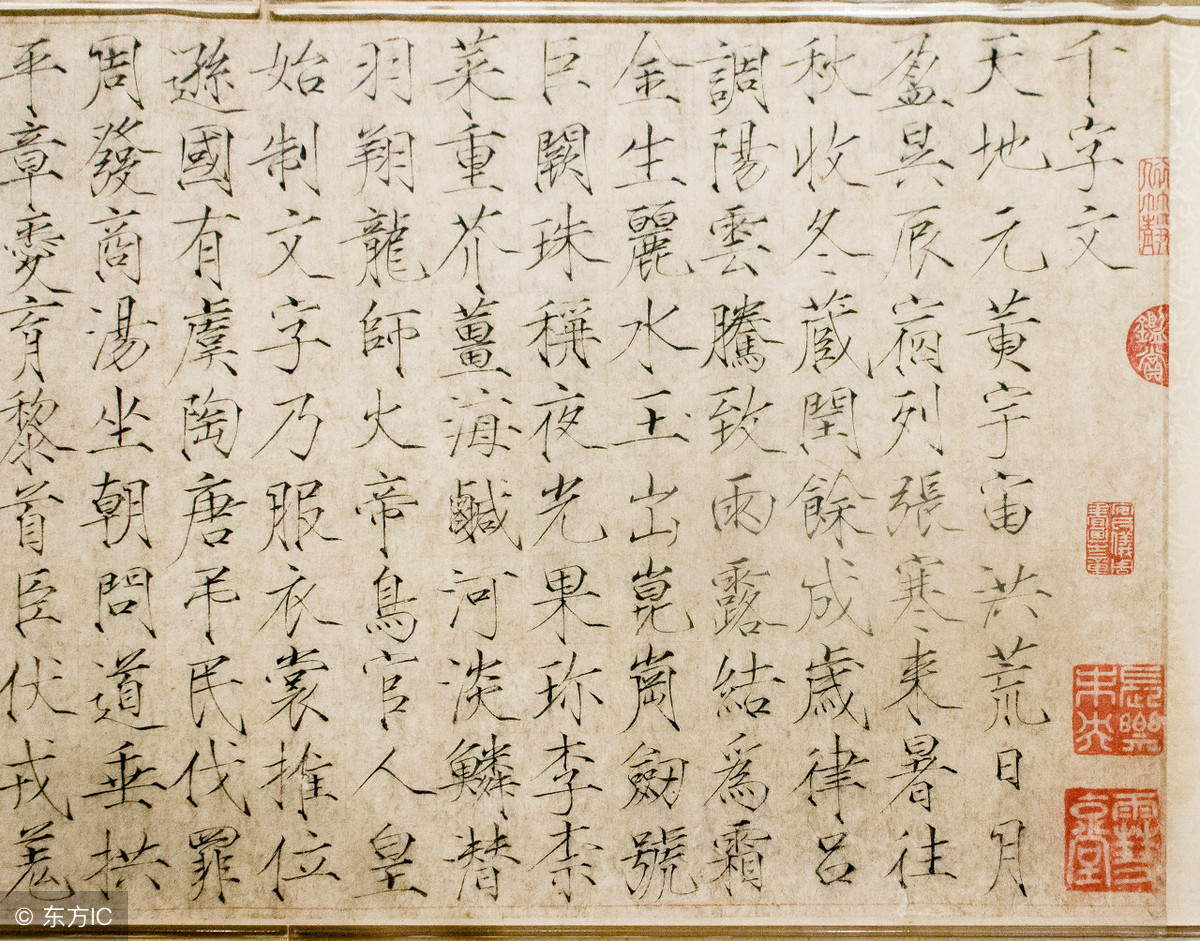 千字文
天地元黄宇宙洪荒日月
盈昃辰宿列張寒来暑往
秋收冬蔵閏餘成歳律吕
調陽雲騰致雨露結爲霜
金生麗水玉出崑崗劔號
巨闕珠稱夜光果珍李柰
菜重芥薑海鹹河淡鱗潜
羽翔龍師火帝鳥官人皇
始制文字乃服衣裳推位
遜國有虞陶唐弔民伐罪
周發商湯坐朝問道垂拱
平章愛育黎首臣伏戎羌
鑑賞
© 东方IC